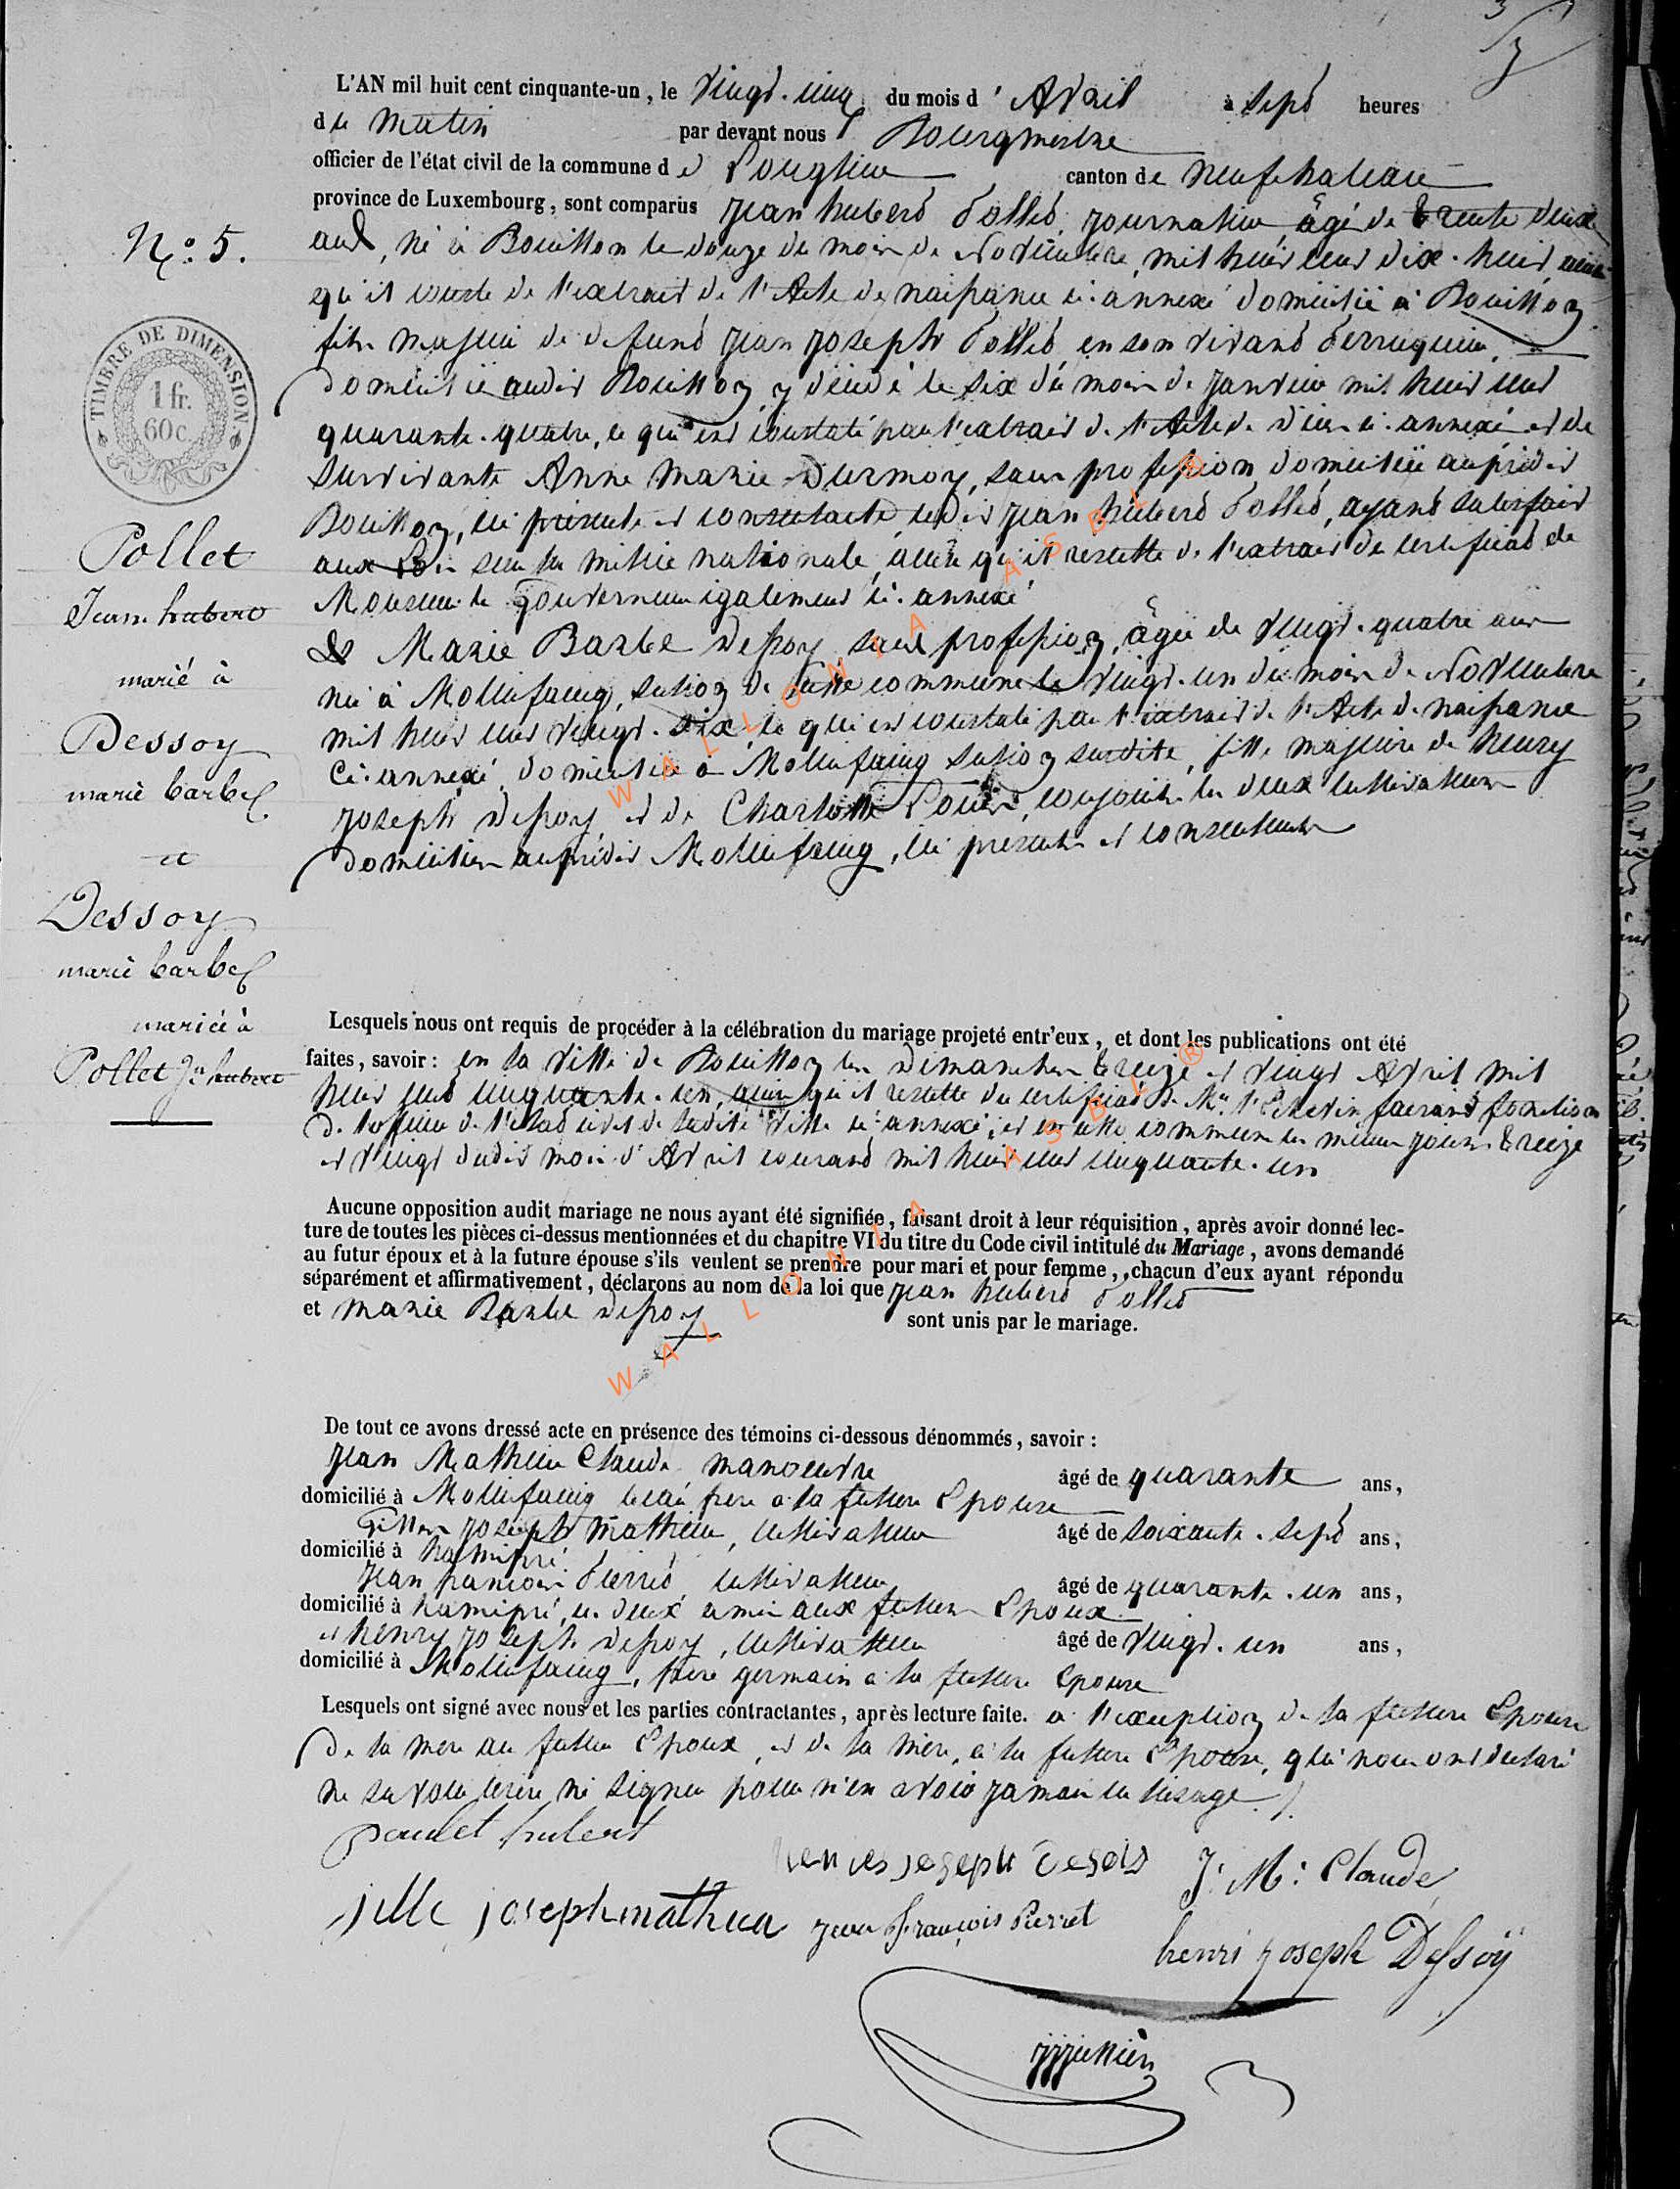 3
L'AN mil huit cent cinquante-un, le vingt-cinq du mois d'Avril à sept heures
du matin par devant nous Bourgmestre
officier de l'état civil de la commune de Longlier canton de Neufchateau
province de Luxembourg, sont comparus Jean hubert Pollet, journalier âgé de trente deux
ans, né à Bouillon le douze du mois de Novembre, mil huit cent dix-huit ainsi
qu'il conste de l'extrait de l'Acte de naissance ci-annexé domicilié à Bouillon
fils majeur de defunt Jean Joseph Pollet en son vivant Perruquier,
domicilié audit Bouillon, y décédé le six du mois de Janvier mil huit cent
quarante-quatre, ce qui est constaté par l'extrait de l'Acte de décès ci-annexé et de
survivante Anne Marie Durmoy, sans profession domiciliée au prédit
Bouillon, ici présente et consentante, ledit Jean hubert Pollet, ayant satisfait
aux lois sur la milice nationale, ainsi qu'il resulte de l'extrait du certificat de
Monsieur le Gouverneur également ci-annexé
& Marie Barbe Dessoy sans profession, âgée de vingt-quatre ans
née à Mollinfaing, section de cette commune le vingt-un du mois de Novembre
mil huit cent vingt-six, ce qui est constaté par l'extrait de l'Acte de naissance
ci-annexé, domiciliée à Mollinfaing section susdite, fille majeure de henry
Joseph Dessoy et de Charlotte Louis, conjoints les deux cultivateurs
domiciliés au prédit Mollinfaing, ici présents et consentants
N.o 5.
TIMBRE DE DIMENSION.
1 fr.
60 c.
Pollet
Jean hubert
marié à
Dessoy
marie barbe
et
Dessoy
marie barbe
mariée à
Pollet Jn hubert
Lesquels nous ont requis de procéder à la célébration du mariage projeté entr'eux, et dont les publications ont été
faites, savoir: en la ville de Bouillon les Dimanches treize et vingt Avril mil
huit cent cinquante-un, ainsi qu'il resulte du certificat de Mr. l'Echevin faisant fonctions
d'officier de l'état civil de ladite ville ci-annexé; et en cette commune les mêmes jours treize
et vingt dudit mois d'Avril courant mil huit cent cinquante-un
Aucune opposition audit mariage ne nous ayant été signifiée, faisant droit à leur réquisition, après avoir donné lec-
ture de toutes les pièces ci-dessus mentionnées et du chapitre VI du titre du Code civil intitulé du Mariage, avons demandé
au futur époux et à la future épouse s'ils veulent se prendre pour mari et pour femme, chacun d'eux ayant répondu
séparément et affirmativement, déclarons au nom de la loi que Jean hubert Pollet
et Marie Barbe Dessoy sont unis par le mariage.
De tout ce avons dressé acte en présence des témoins ci-dessous dénommés, savoir:
Jean Mathieu Claude manoeuvre âgé de quarante ans,
domicilié à Mollinfaing beau frere à la future Epouse
Gilles Joseph Mathieu, cultivateur âgé de soixante-sept ans,
domicilié à hamipré
Jean francois Pierret cultivateur âgé de quarante-un ans,
domicilié à hamipré, les deux amis aux futurs Epoux
et henry Joseph Dessoy, cultivateur âgé de vingt-un ans,
domicilié à Mollinfaing, frere germain à la future Epouse
Lesquels ont signé avec nous et les parties contractantes, après lecture faite. à l'exception de la future Epouse
de la mere au futur Epoux, et de la mere, à la future Epouse, qui nous ont déclaré
ne savoir écrire ni signer pour n'en avoir jamais eu l'usage
poulet hubert
henries joseph desois
J. M: Claude
jille joseph mathieu
jean françois Pierret
henri joseph Dessoÿ
WALLONIA ASBL ®
WALLONIA ASBL ®